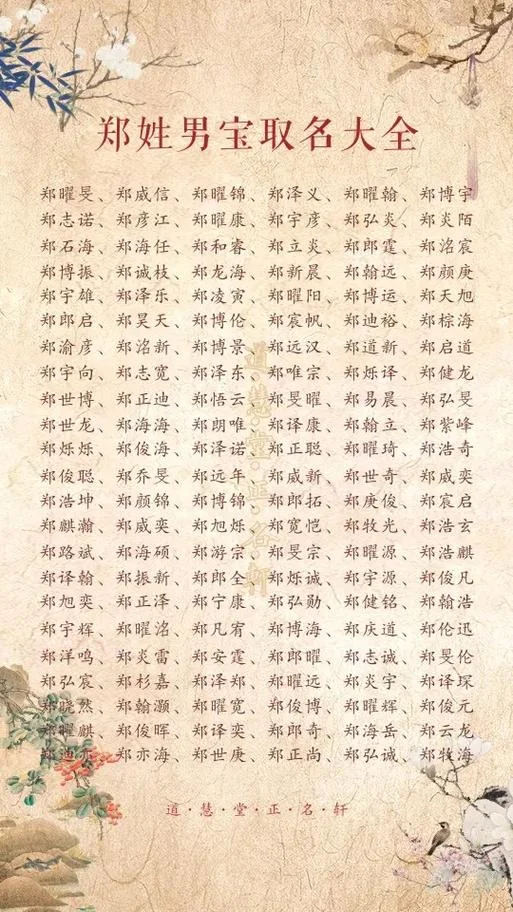 郑姓男宝取名大全
郑曜旻、郑威信、郑曜锦、郑泽义、郑曜翰、郑博宇
郑志诺、郑彦江、郑曜康、郑宇彦、郑弘炎、郑炎陌
郑石海、郑海任、郑和睿、郑立炎、郑郎霆、郑洺宸
郑博振、郑诚枝、郑龙海、郑新晨、郑翰远、郑颜庚
郑宇雄、郑泽乐、郑凌寅、郑曜阳、郑博运、郑天旭
郑郎启、郑昊天、郑博伦、郑宸帆、郑迪裕、郑棕海
郑渝彦、郑洺新、郑博景、郑远汉、郑道新、郑启道
郑宇向、郑志宽、郑泽东、郑唯宗、郑烁译、郑健龙
郑世博、郑正迪、郑悟云、郑旻曜、郑易晨、郑弘旻
郑世龙、郑海海、郑朗唯、郑译康、郑翰立、郑紫峰
郑烁烁、郑俊海、郑泽诺、郑正聪、郑曜琦、郑浩奇
郑俊聪、郑乔旻、郑远年、郑威新、郑世奇、郑威奕
郑浩坤、郑颜锦、郑博锦、郑郎拓、郑庚俊、郑宸启
郑麒瀚、郑威奕、郑旭烁、郑宽恺、郑牧光、郑浩玄
郑路斌、郑海硕、郑游宗、郑旻宗、郑曜源、郑浩麒
郑译翰、郑振新、郑郎全、郑烁诚、郑宇源、郑俊凡
郑旭奕、郑正泽、郑宁康、郑弘勋、郑健铭、郑翰浩
郑宇辉、郑曜洺、郑凡宥、郑博海、郑庆道、郑伦迅
郑洋鸣、郑炎雷、郑安霆、郑郎曜、郑志诚、郑旻伦
郑弘宸、郑杉嘉、郑泽郑、郑曜远、郑炎宇、郑译琛
郑晓然、郑翰灏、郑曜宽、郑俊博、郑曜辉、郑俊元
郑曜麒、郑俊晖、郑译奕、郑郎奇、郑海岳、郑云龙
郑迪亦、郑亦海、郑世庚、郑正尚、郑弘诚、郑牧海
道·慧·堂·正·名·轩
道·慧·堂·正·名·轩